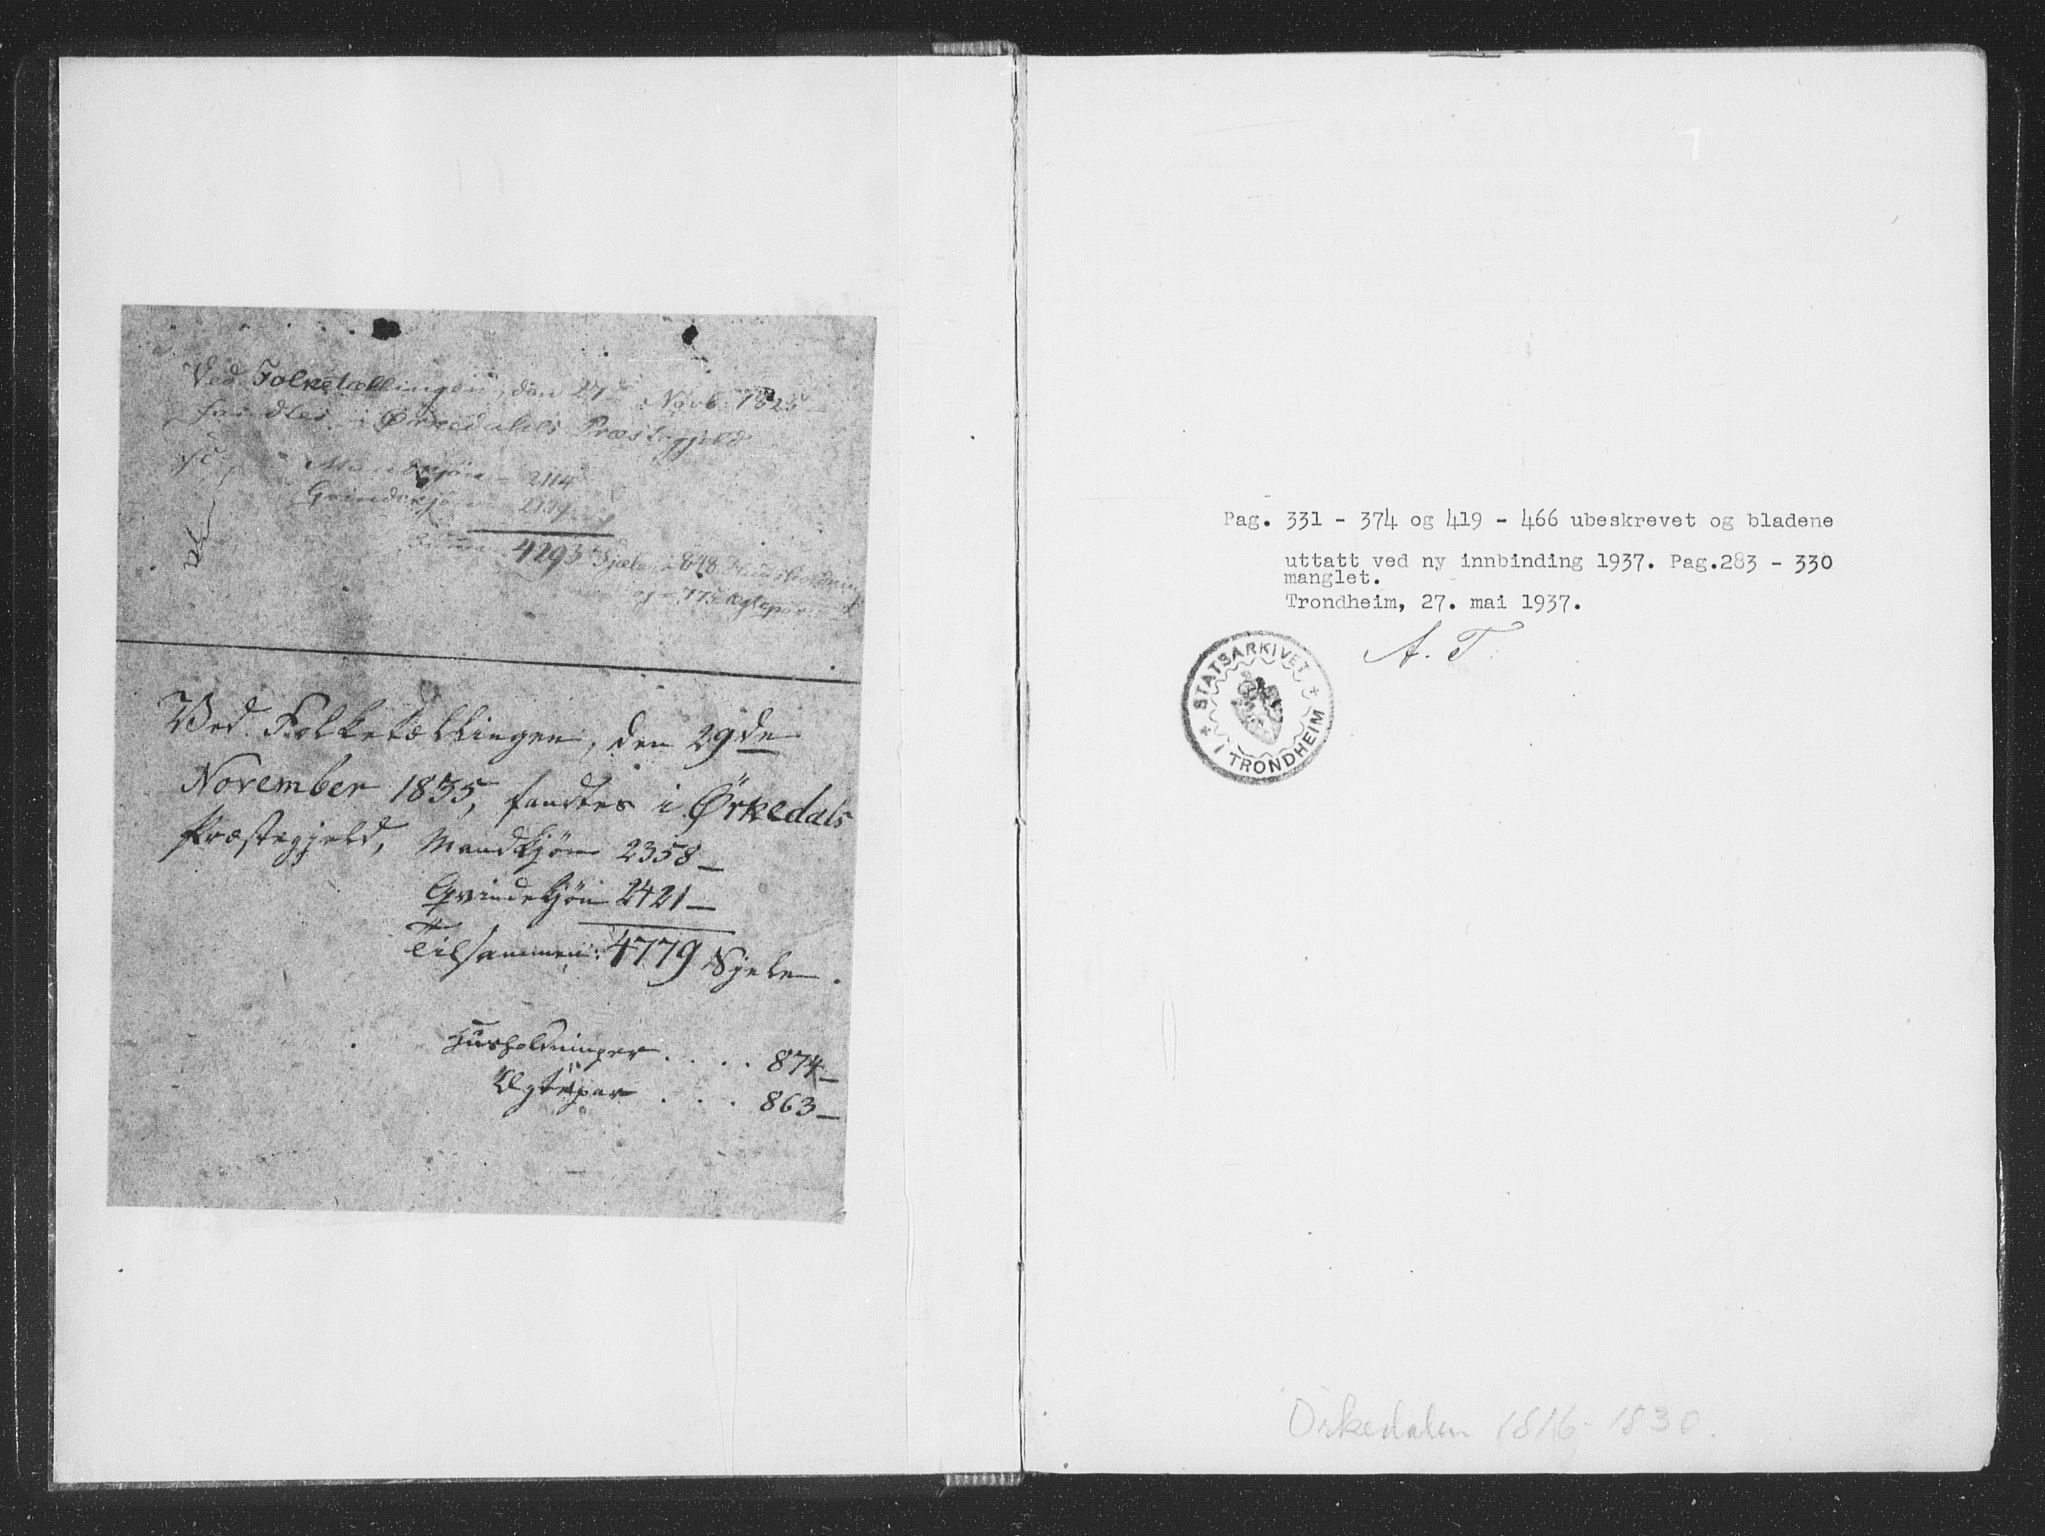 Ved Folketællingen, den 27de Novb: 1825
fandtes i Ørkedahls Præstegjeld
Mandkjøn - 2114
Qvindekjøn
4293 Sjele, - 848 Huusholdninger
og - 775 Ægtepar
Ved Folketællingen, den 29de
November 1835, fandtes i Ørkedals
Præstegjeld, Mandkjøn 2358 -
Qvindekjøn 2421 -
Tilsammen: 4779 Sjele.
Huusholdninger . . . . 874 -
Ægtepar . . . 863 -
Pag. 331 - 374 og 419 - 466 ubeskrevet og bladene
uttatt ved ny innbinding 1937. Pag.283 - 330
manglet.
Trondheim, 27. mai 1937.
A. T.
STATSARKIVET
I TRONDHEIM
Orkedalen 1816-1830.